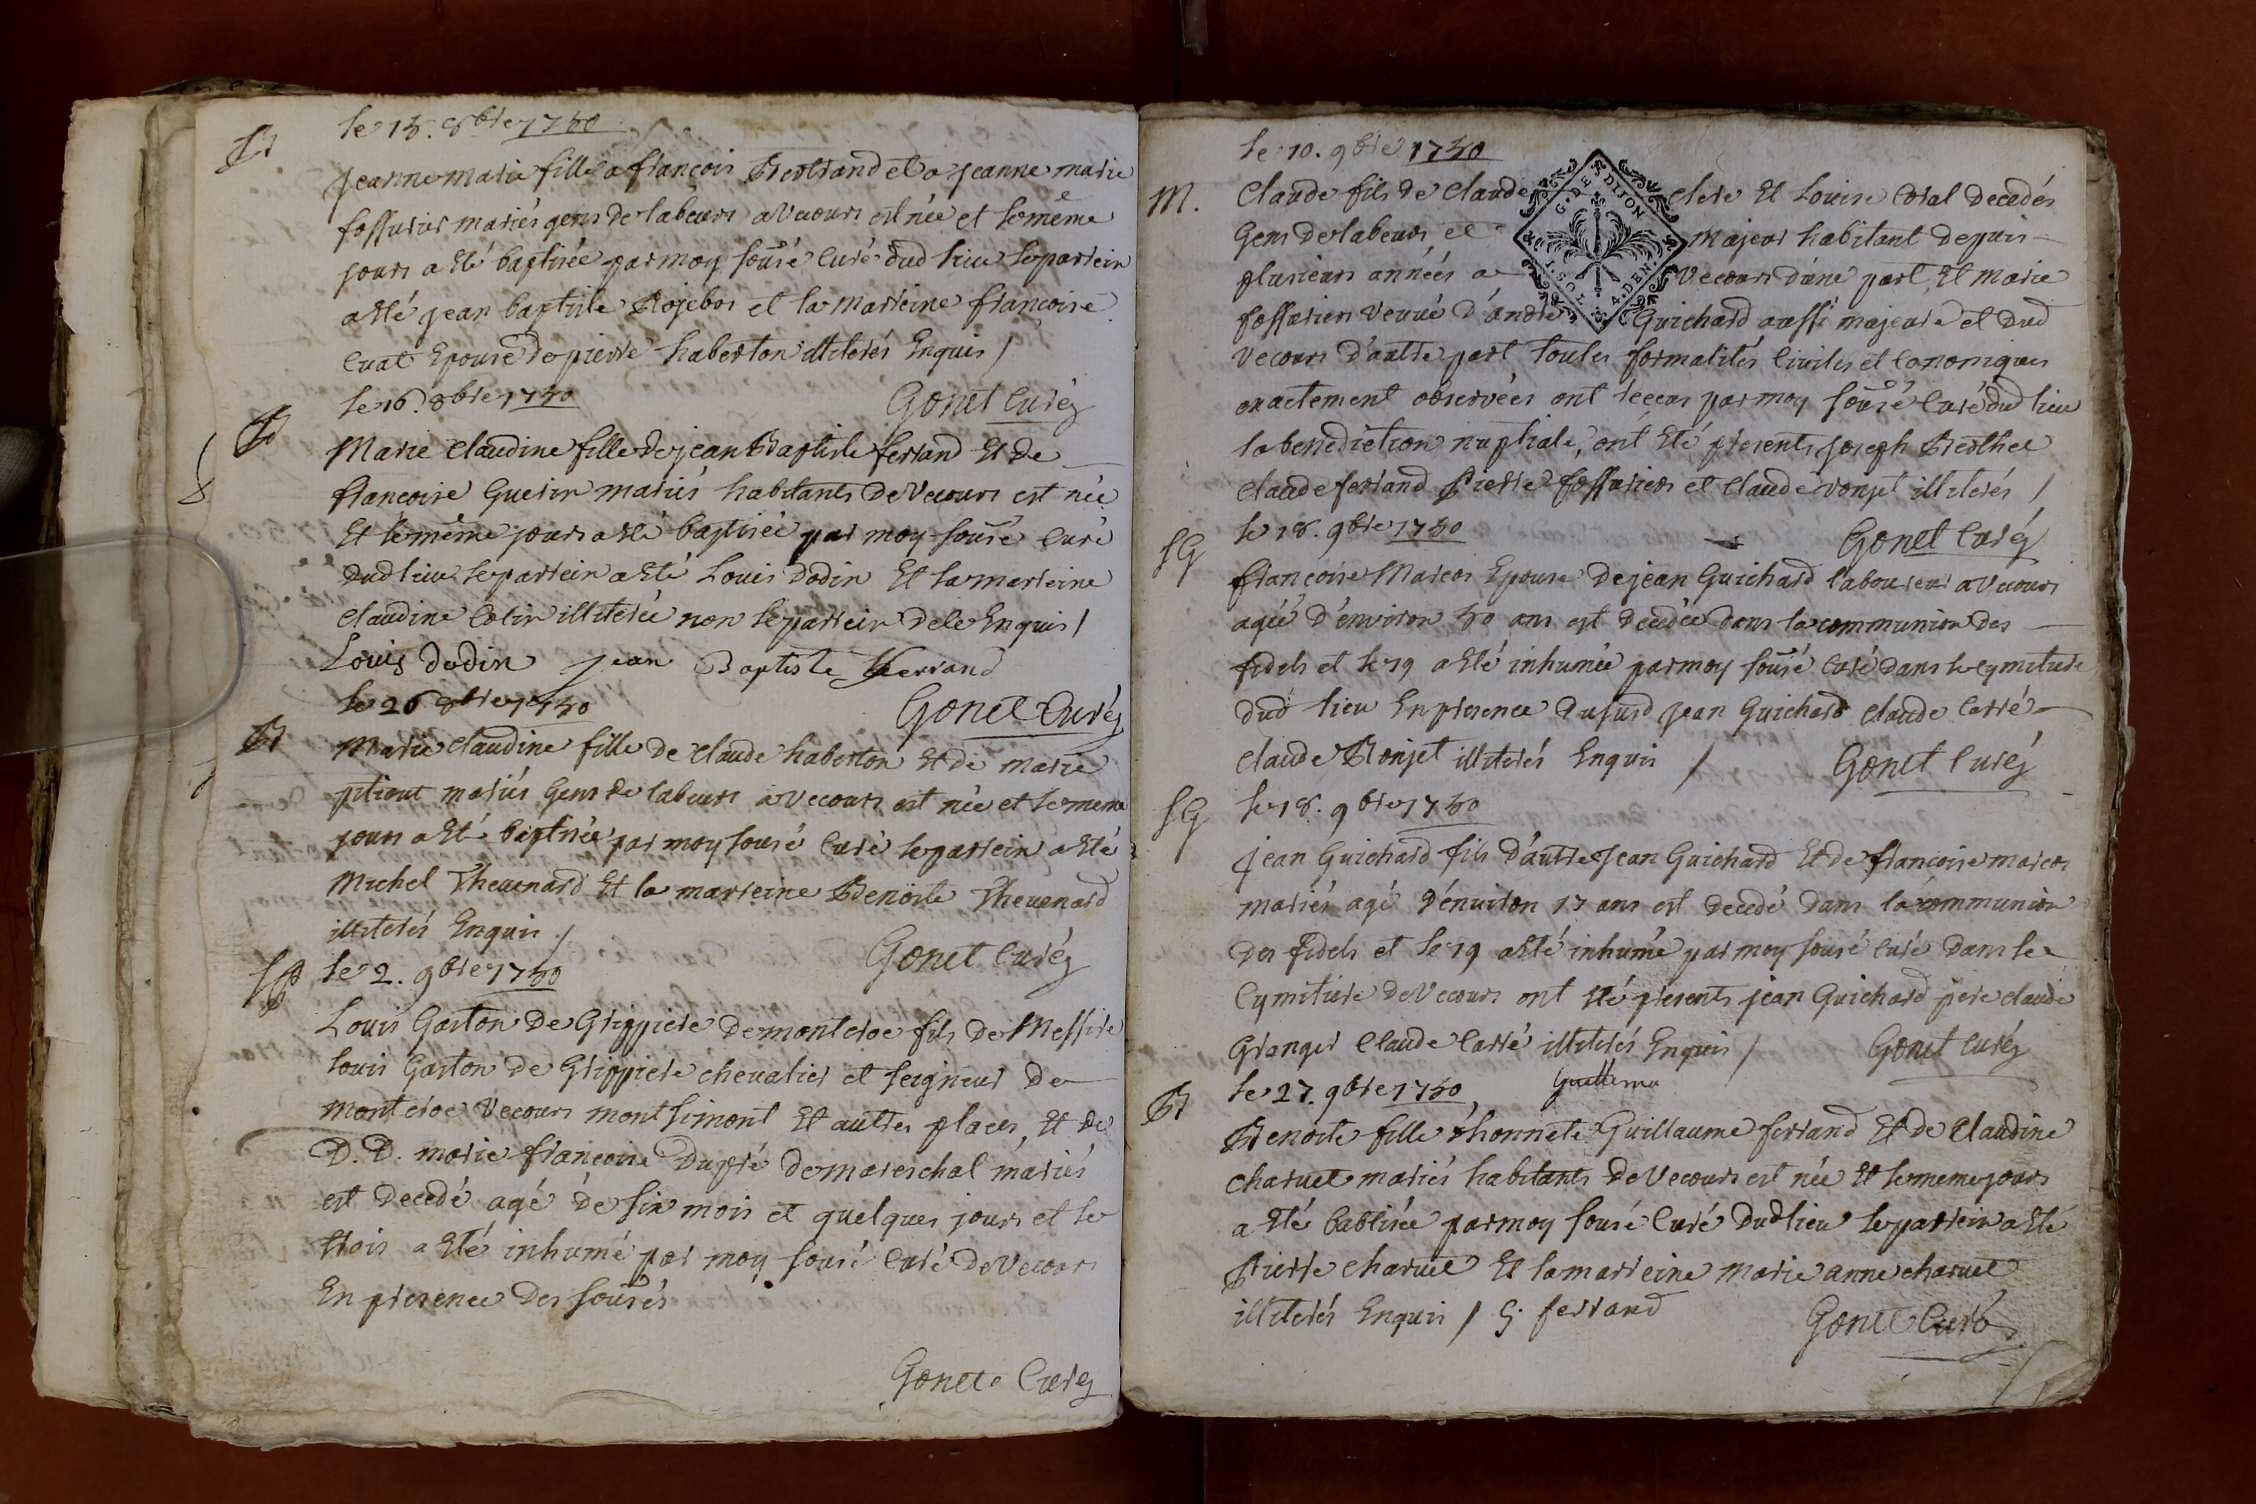 Bt
le 15. 8bre 1750
jeanne marie fille a françois Bertrand et a jeanne marie
fossurier mariés gens de labeurs a vecours est née et le même
jours a Eté baptisée par moy sousé Curé dud lieu le parrein
a Eté jean baptiste Rojebos et la marreine françoise
Curt Epouse de pierre haberton illiterés Enquis /
Gonet Curéz
le 16. 8bre 1750
Bt
Marie Claudine fille de jean Baptiste ferrand Et de
françoise Guerin mariés habitants de Vecours est née
Et le même jours a Eté baptisée par moy sousé Curé
dud lieu le parrein a Eté Louis dodin Et la marreine
Claudine Cotin illiterée non le parrein de le Enquis /
Louis dodin jean Baptiste ferrand
Gonet Curéz
le 26 8bre 1750
Bt
Marie Claudine fille de Claude haberton Et de marie
mariés Gens de labeurs a vecours est née et le meme
jours a Eté baptisée par moy sousé Curé le parrein a Eté
Michel Thevenard Et la marreine Benoîte Thevenard
illiterés Enquis /
Gonet Curéz
le 2. 9bre 1750
Louis Gaston De Grippiere de montcroc fils de Messire
louis Gaston de Grippiere chevalier et seigneur de
montcroc Vecours montsimont Et autres places, Et de
D. D. marie françoise Dupré de mareschal mariés
est decedé agé de six mois et quelques jours et le
trois a Eté inhumé par moy sousé Curé de Vecours
En presence des sousés
Gonet Curéz
le 10. 9bre 1750
M.
Claude fils de Claude Clere Et Louise Coral decedés
Gens de labeurs, et majeur habitant depuis
plusieurs années a Vecours d'une part, Et Marie
fossurier veuve d'andre Guichard aussi majeure et dud
vecours d'autre part toutes formalités Civiles et Canoniques
exactement observées ont receus par moy sousé Curé du lieu
la benediction nuptiale, ont Eté presents joseph Berthet
Claude ferrand Pierre fossurier et Claude ronjet illiterés /
G. DE DIJON
1. SOL. 4. DEN.
Gonet Curéz
le 18. 9bre 1750
SG
françoise Marcor Epouse de jean Guichard laboureur a vecours
agée d'environ 50 ans est decedée dans la communion des
fidels et le 19 a Eté inhumée par moy sousé Curé dans le Cymitiere
dud lieu En presence dususd jean Guichard Claude Carré
Claude Ronjet illiterés Enquis /
Gonet Curéz
le 18. 9bre 1750
SG
jean Guichard fils d'autre jean Guichard Et de françoise marcor
mariés agé d'environ 17 ans est decedé dans la communion
des fidels et le 19 a Eté inhumé par moy sousé Curé dans le
Cymitiere de Vecours ont Eté presents jean Guichard pere claude
Granger Claude Carré illiterés Enquis /
Gonet Curéz
le 27. 9bre 1750,
Bt
Benoîte fille d'honnete Guillaume ferrand Et de Claudine
charvet mariés habitants de Vecours est née Et le meme jours
a Eté babtisée par moy sousé Curé dud lieu le parrein a Eté
Pierre charvet Et la marreine Marie anne charvet
illiterés Enquis / G. ferrand
Gonet Curéz